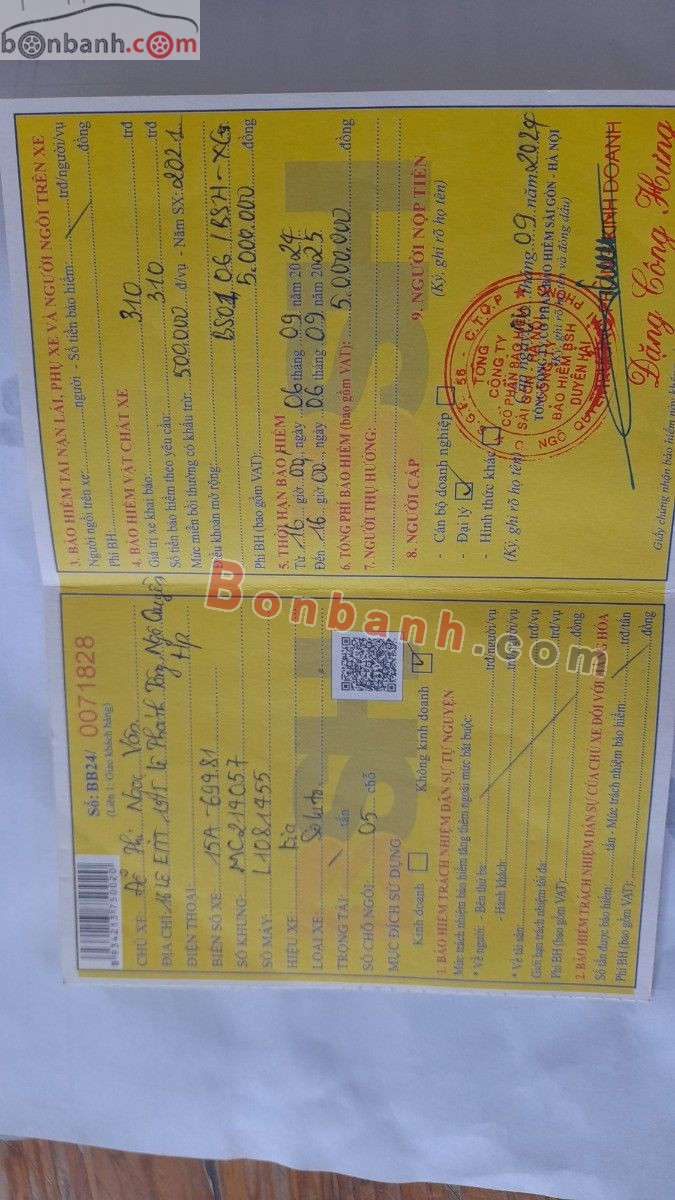 bonbanh.com
Số: BB24/ 0071828
(Liên 1: Giao khách hàng)
8 934213 750020
CHỦ XE: Ngọc Vân
ĐỊA CHỈ: 16 Lê Phánh Tông Ngô Quyền
HP
ĐIỆN THOẠI:
BIỂN SỐ XE: 15A-699.81
SỐ KHUNG: MC219057
SỐ MÁY: L1081955
HIỆU XE: kia
LOẠI XE: Soluto
TRỌNG TẢI: tấn
SỐ CHỖ NGỒI: 05 chỗ
MỤC ĐÍCH SỬ DỤNG
Kinh doanh Không kinh doanh
1. BẢO HIỂM TRÁCH NHIỆM DÂN SỰ TỰ NGUYỆN
Mức trách nhiệm bảo hiểm tăng thêm ngoài mức bắt buộc:
* Về người: - Bên thứ ba: trđ/người/vụ
- Hành khách: trđ/người/vụ
* Về tài sản: trđ/vụ
Giới hạn trách nhiệm tối đa: trđ/vụ
Phí BH (bao gồm VAT): đồng
2. BẢO HIỂM TRÁCH NHIỆM DÂN SỰ CỦA CHỦ XE ĐỐI VỚI HÀNG HÓA
Số tấn được bảo hiểm: tấn - Mức trách nhiệm bảo hiểm: trđ/tấn
Phí BH (bao gồm VAT): đồng
3. BẢO HIỂM TAI NẠN LÁI, PHỤ XE VÀ NGƯỜI NGỒI TRÊN XE
Người ngồi trên xe: người - Số tiền bảo hiểm: trđ/người/vụ
Phí BH: đồng
4. BẢO HIỂM VẬT CHẤT XE
Giá trị xe khai báo: 310 trđ
Số tiền bảo hiểm theo yêu cầu: 310 trđ
Mức miễn bồi thường có khấu trừ: 500.000 đ/vụ - Năm SX: 2021
Điều khoản mở rộng: BS01,06/BSH-XCG
Phí BH (bao gồm VAT): 5.000.000 đồng
5. THỜI HẠN BẢO HIỂM
Từ 16 giờ 00, ngày 06 tháng 09 năm 2024
Đến 16 giờ 00, ngày 06 tháng 09 năm 2025
6. TỔNG PHÍ BẢO HIỂM (bao gồm VAT): 5.000.000 đồng
7. NGƯỜI THỤ HƯỞNG:
8. NGƯỜI CẤP 9. NGƯỜI NỘP TIỀN
(Ký, ghi rõ họ tên)
- Cán bộ doanh nghiệp
- Đại lý
- Hình thức khác
(Ký, ghi rõ họ tên)
tháng 09 năm 2024
TỔNG CÔNG TY CỔ PHẦN BẢO HIỂM SÀI GÒN - HÀ NỘI
TỔNG
CÔNG TY
CỔ PHẦN BẢO HIỂM
SÀI GÒN - HÀ NỘI
CÔNG TY
BẢO HIỂM BSH
DUYÊN HẢI
KINH DOANH
Đặng Công Hưng
Bonbanh.com